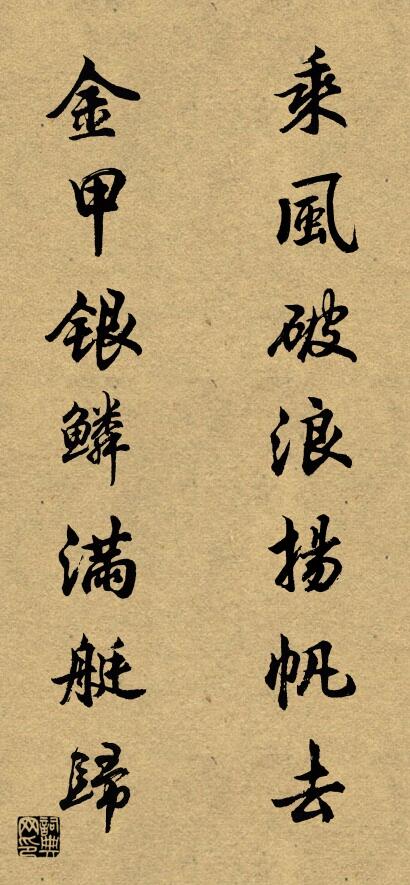 乘風破浪揚帆去
金甲銀鱗滿艇歸
詞典网印